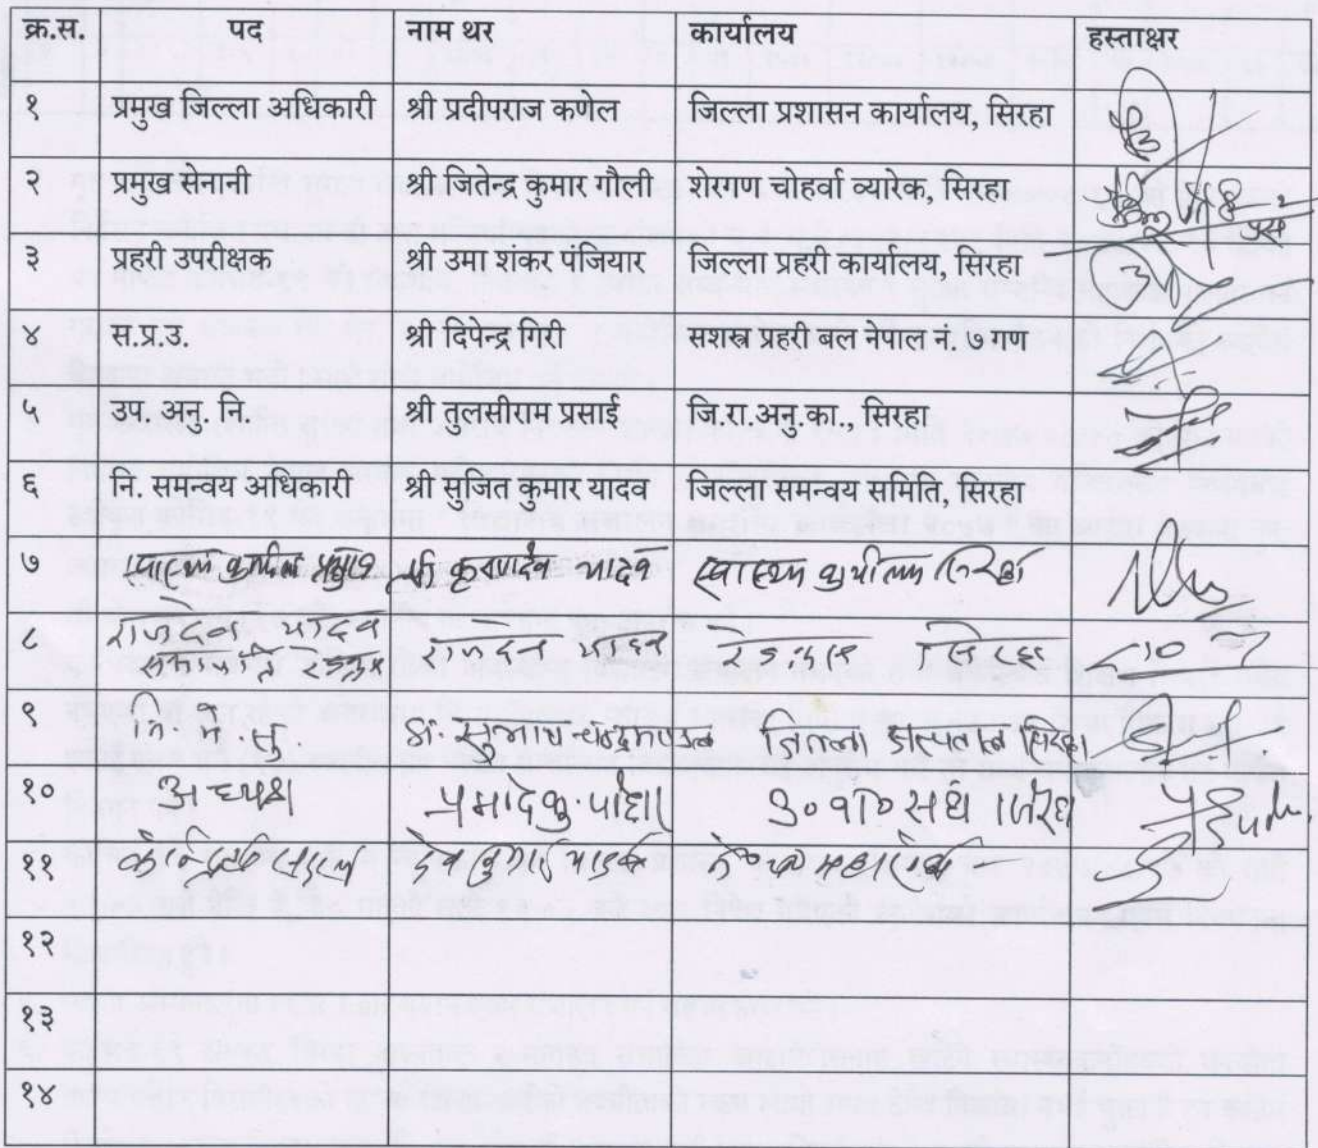 क्र.स. पद नाम थर कार्यालय हस्ताक्षर
१ प्रमुख जिल्ला अधिकारी श्री प्रदीपराज कणेल जिल्ला प्रशासन कार्यालय, सिरहा
२ प्रमुख सेनानी श्री जितेन्द्र कुमार मौली शेरगण चोहर्वा व्यारेक, सिरहा
३ प्रहरी उपरीक्षक श्री उमा शंकर पंजियार जिल्ला प्रहरी कार्यालय, सिरहा
४ स.प्र.उ. श्री दिपेन्द्र गिरी सशस्त्र प्रहरी बल नेपाल नं. ७ गण
५ उप. अनु. नि. श्री तुलसीराम प्रसाई जि.रा.अनु.का.,, सिरहा
६ नि. समन्वय अधिकारी श्री सुजित कुमार यादव जिल्ला समन्वय समिति, सिरहा
७ स्वास्थ्य कार्यालय प्रमुख श्री यादव स्वास्थ्य कार्यालय सिरहा
८ राजदेव यादव राजदेव यादव रेडक्रस सिरहा
९ नि. मे. सु डा. सुभाष चन्द्र मण्डल जिल्ला अस्पताल सिरहा
१०
११
१२
१३
१४